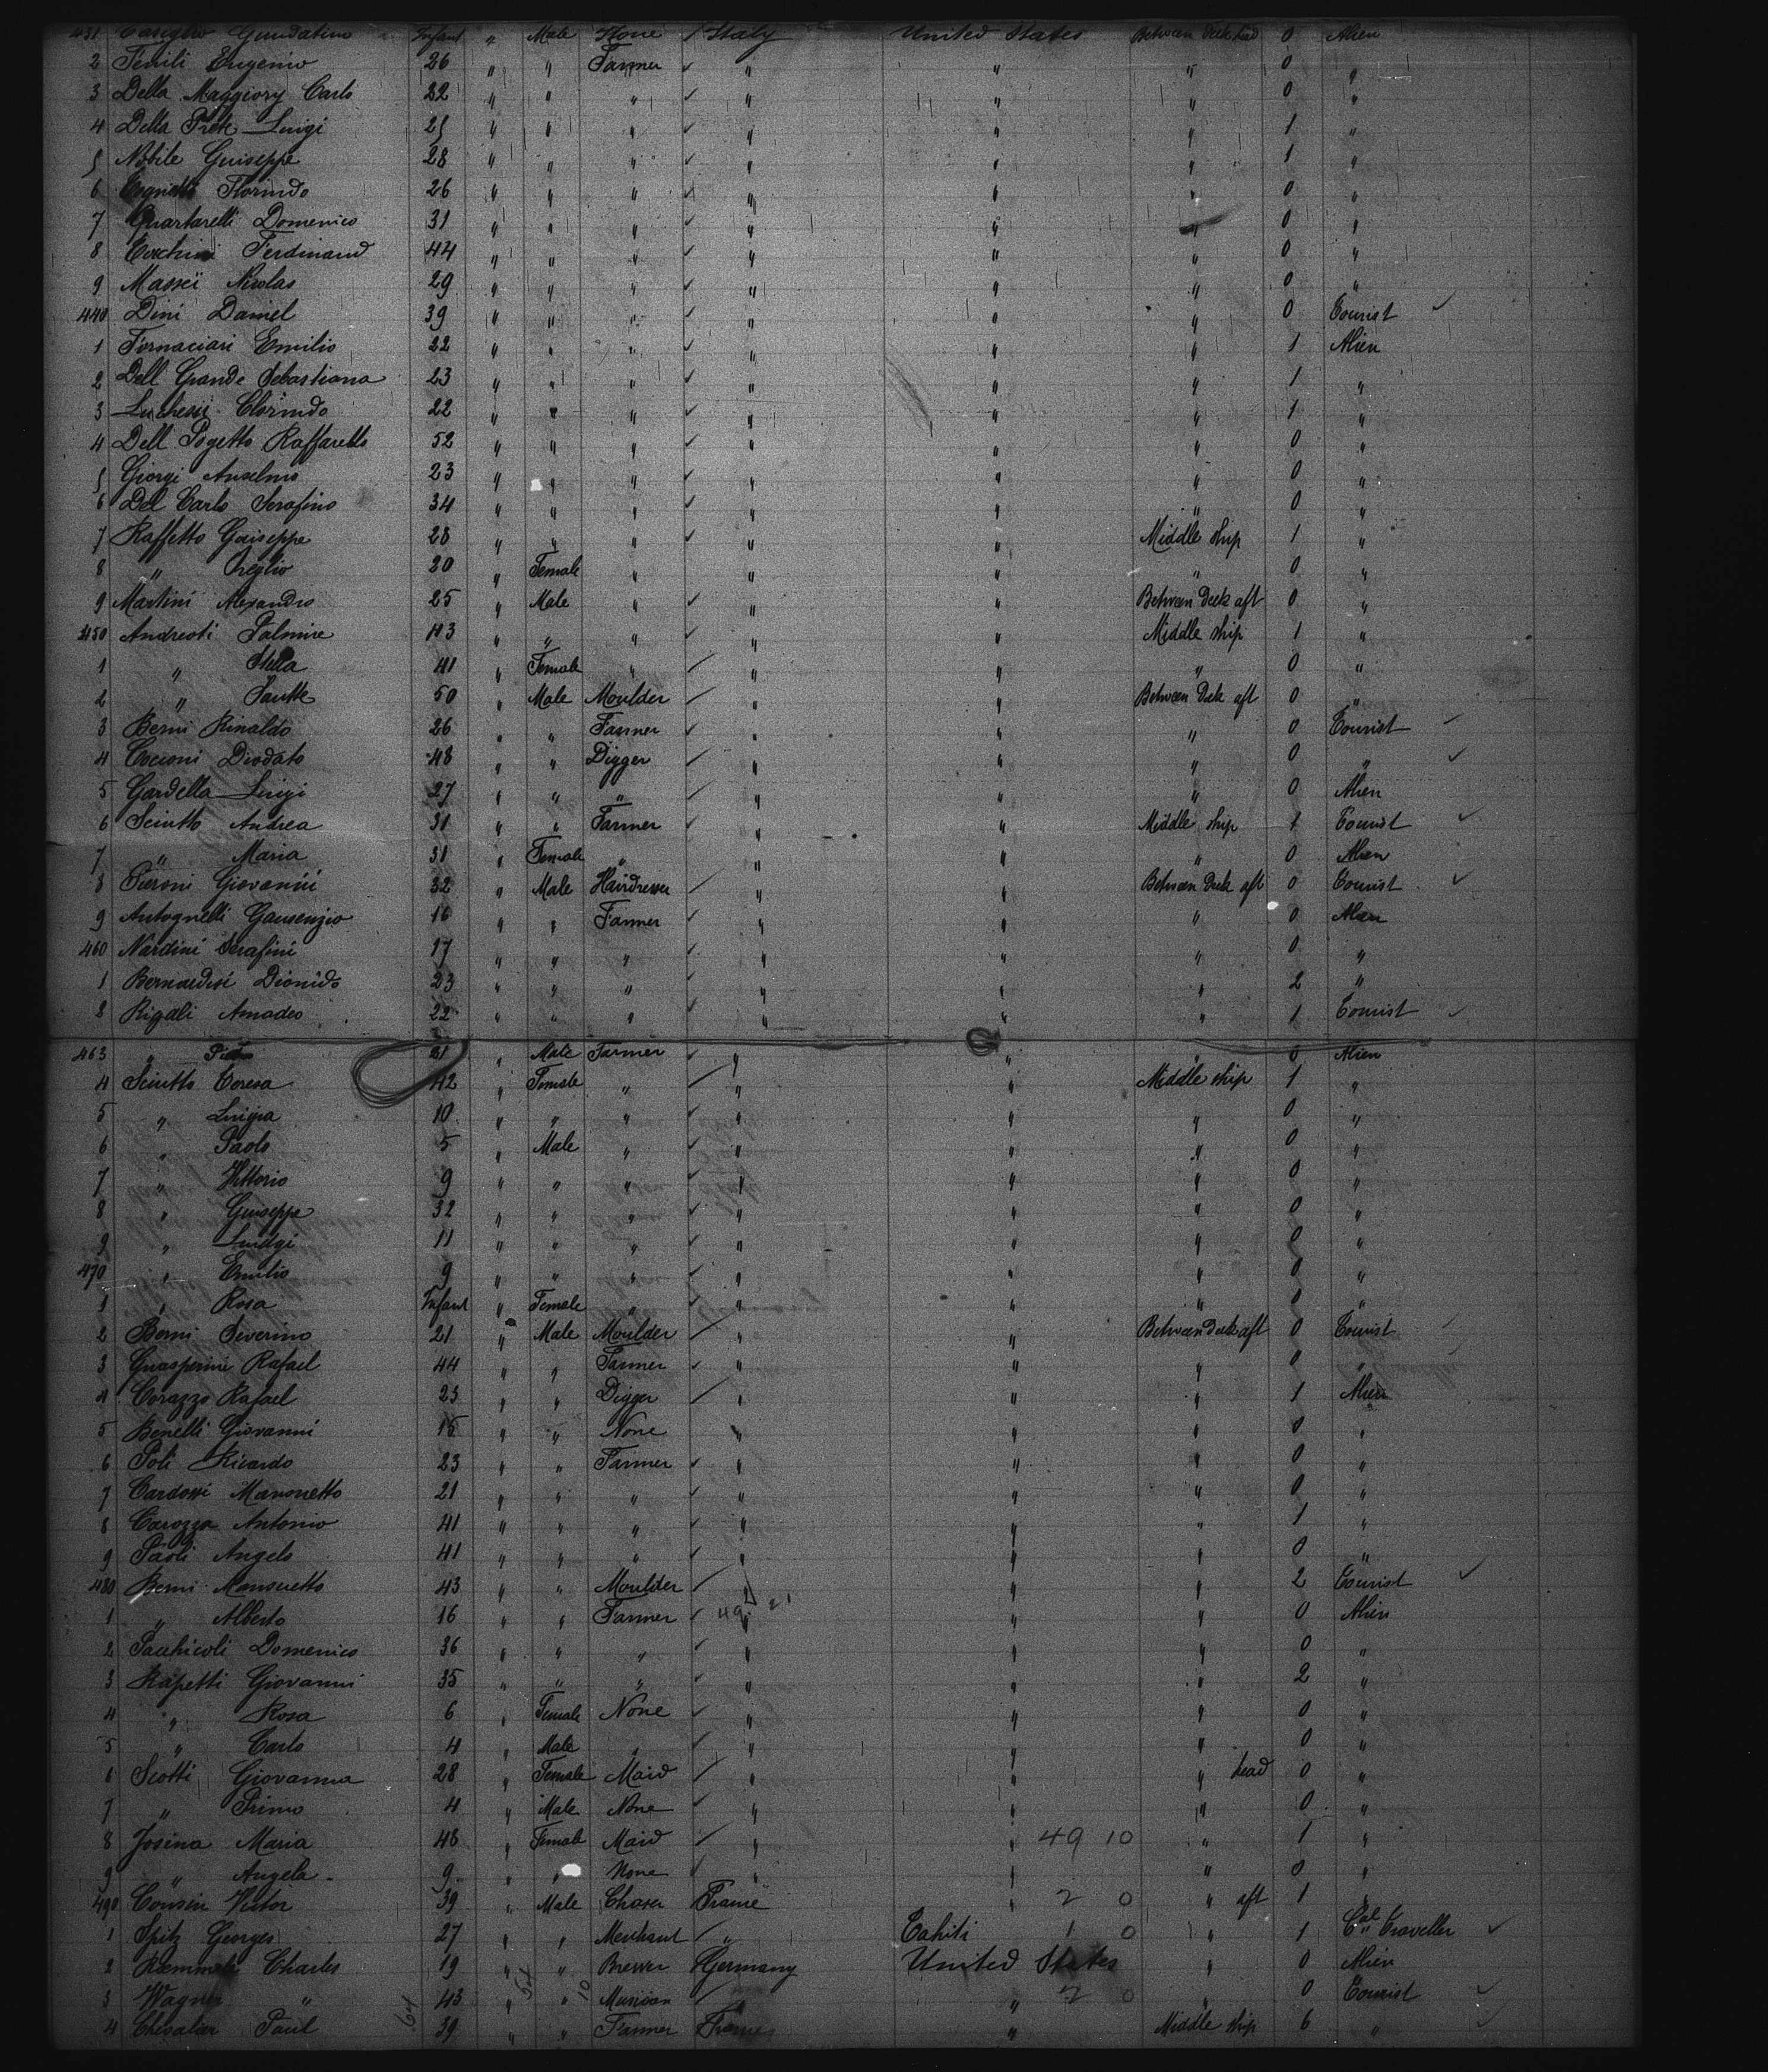 431 Guidatino Infant " Male None / Italy United States Between Deck head 0 Alien
2 Eugenio 26 " " Farmer ✓ " " " 0 "
3 Della Maggiory Carlo 22 " " " ✓ " " " 0 "
4 Della Prete Luigi 25 " " " ✓ " " " 1 "
5 Nobile Guiseppe 28 " " " ✓ " " " 1 "
6 Florindo 26 " " " ✓ " " " 0 "
7 Quartarelli Domenico 31 " " " ✓ " " " 0 "
8 Ferdinand 44 " " " ✓ " " " 0 "
9 Massei Nicolas 29 " " " ✓ " " " 0 "
440 Dini Daniel 39 " " " ✓ " " " 0 Tourist ✓
1 Fornaciari Emilio 22 " " " ✓ " " " 1 Alien
2 Dell Grande Sebastiana 23 " " " ✓ " " " 1 "
3 Luchessi Clorindo 22 " " " ✓ " " " 1 "
4 Dell Pogetto Raffaello 52 " " " ✓ " " " 0 "
5 Giorgi Anselmo 23 " " " ✓ " " " 0 "
6 Del Carlo Serafino 34 " " " ✓ " " " 0 "
7 Raffetto Guiseppe 28 " " " ✓ " " Middle ship 1 "
8 " 20 " Female " " " " 0 "
9 Martini Alexandro 25 " Male " ✓ " " Between Deck aft 0 "
450 Andreoti Palmire 43 " " " ✓ " " Middle ship 1 "
1 " Stella 41 " Female " / " " " 0 "
2 " Sautte 50 " Male Moulder / " " Between Deck aft 0 "
3 Berni Rinaldo 26 " " Farmer ✓ " " " 0 Tourist ✓
4 Cocioni Diodato 48 " " Digger / " " " 0 " ✓
5 Gardella Luigi 27 " " " / " " " 0 Alien
6 Sciutto Andrea 31 " " Farmer ✓ " " Middle ship 1 Tourist ✓
7 " Maria 31 " Female " " " " 0 Alien
8 Pieroni Giovanni 32 " Male Hairdresser / " " Between Deck aft 0 Tourist ✓
9 Antognelli Gausenzio 16 " " Farmer ✓ " " " 0 Alien
460 Nardini Serafini 17 " " " ✓ " " " 0 "
1 Bernardesi Dionido 23 " " " ✓ " " " 2 "
2 Rigali Amadeo 22 " " " ✓ " " " 1 Tourist ✓
463 " 31 " Male Farmer ✓ " " " 0 Alien
4 Sciutto Teresa 42 " Female " / " " Middle ship 1 "
5 " Luigia 10 " " " ✓ " " " 0 "
6 " Paolo 5 " Male " ✓ " " " 0 "
7 " Vittorio 9 " " " ✓ " " " 0 "
8 " Guiseppe 32 " " " ✓ " " " 0 "
9 " Luidgi 11 " " " ✓ " " " 0 "
470 " Emilio 9 " " " ✓ " " " 0 "
1 " Rosa Infant " Female " ✓ " " " 0 "
2 Berni Severino 21 " Male Moulder / " " Between Deck aft 0 Tourist ✓
3 Guasperini Rafael 44 " " Farmer ✓ " " " 0 " ✓
4 Corazzo Rafael 23 " " Digger / " " " 1 Alien
5 Benelli Giovanni 15 " " None " " " 0 "
6 Poli Ricardo 23 " " Farmer ✓ " " " 0 "
7 Cardossi Mansuetto 21 " " " ✓ " " " 0 "
8 Carozza Antonio 41 " " " ✓ " " " 1 "
9 Paoli Angelo 41 " " " ✓ " " " 0 "
480 Berni Mansuetto 43 " " Moulder / " " " 2 Tourist ✓
1 " Alberto 16 " " Farmer ✓ 49 " " " 0 Alien
2 Pacchicoli Domenico 36 " " " ✓ " " " 0 "
3 Rapetti Giovanni 35 " " " ✓ " " " 2 "
4 " Rosa 6 " Female None ✓ " " " 0 "
5 " Carlo 4 " Male " ✓ " " " 0 "
6 Scotti Giovanna 28 " Female Maid / " " " head 0 "
7 " Primo 4 " Male None ✓ " " " 0 "
8 Josina Maria 48 " Female Maid / " " 49 10 " 1 "
9 " Angela 9 " " None ✓ " " " 0 "
490 Cousin Victor 39 " Male France " 2 0 " aft 1 "
1 Spitz Georges 27 " " Merchant / " Tahiti 1 0 " 1 Traveller ✓
2 Charles 19 " " Brewer Germany United States " 0 Alien
3 Wagner " 43 " " Musician / " 2 0 " 0 Tourist ✓
4 Chevalier Paul 39 " " Farmer France " Middle ship 6 " ✓